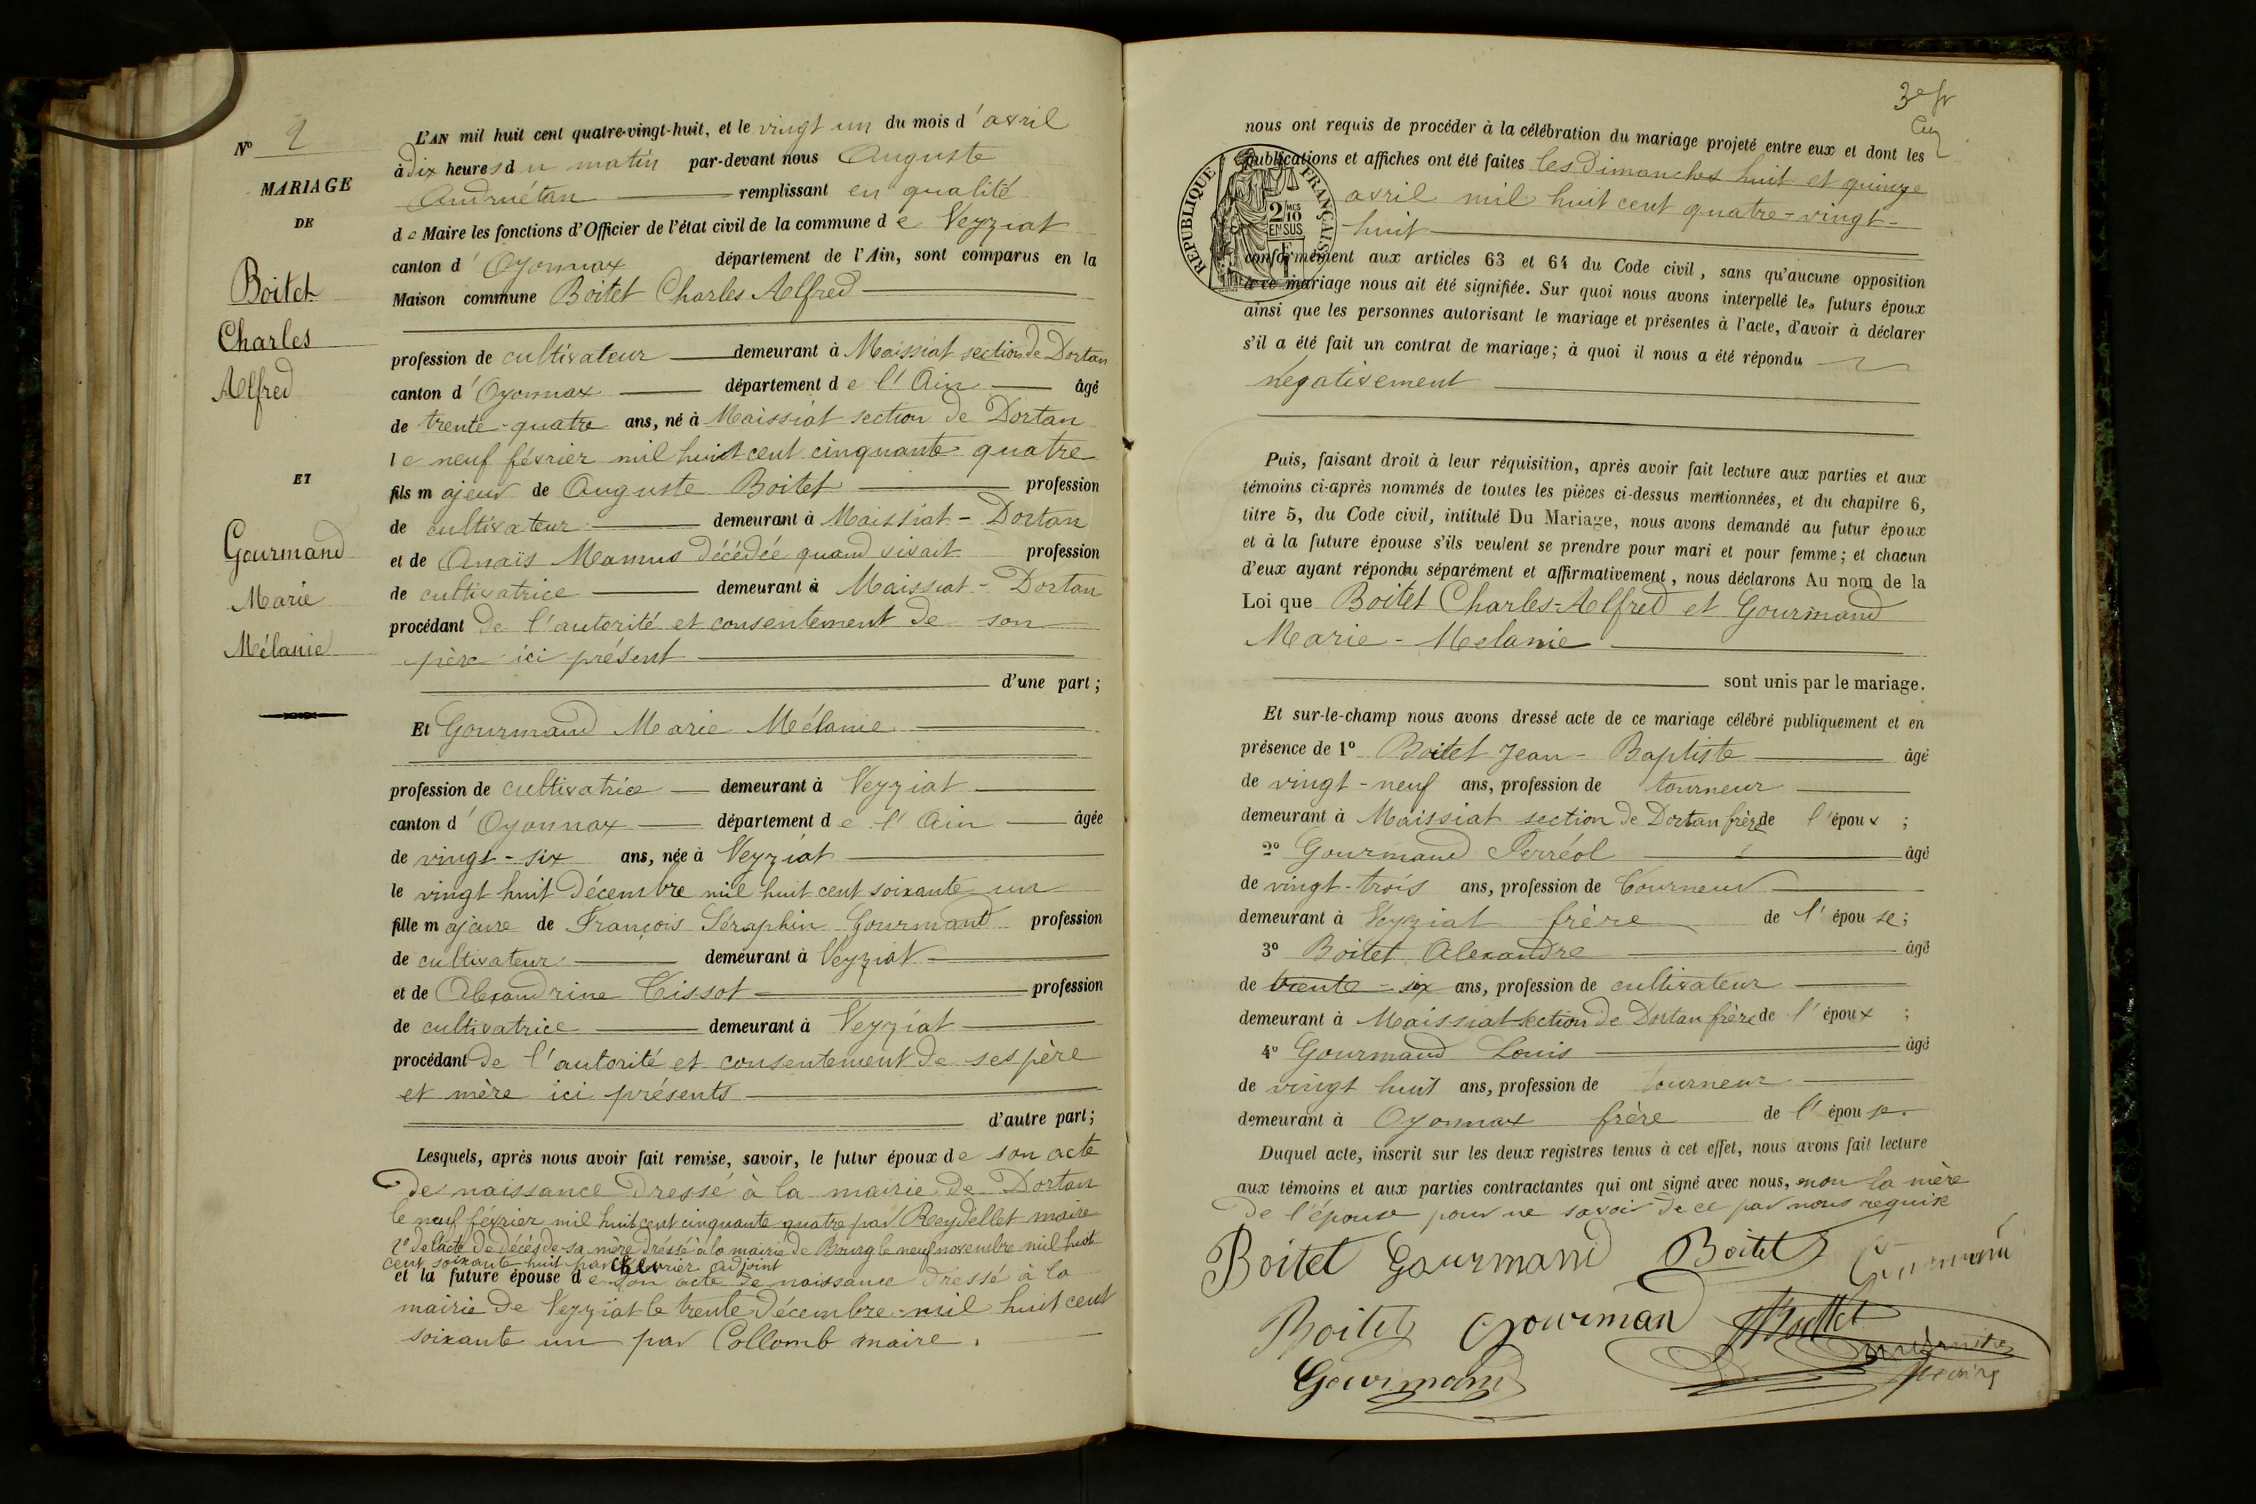 N° 2
MARIAGE
DE
Boitet
Charles
Alfred
ET
Gourmand
Marie
Mélanie
L'AN mil huit cent quatre-vingt-huit, et le vingt un du mois d'avril
à dix heures du matin par-devant nous Auguste
remplissant en qualité
de Maire les fonctions d'Officier de l'état civil de la commune de Veyziat
canton d'Oyonnax département de l'Ain, sont comparus en la
Maison commune Boitet Charles Alfred
profession de cultivateur demeurant à Maissiat section de Dortan
canton d'Oyonnax département de l'Ain âgé
de trente-quatre ans, né à Maissiat section de Dortan
le neuf février mil huit cent cinquante quatre
fils majeur de Auguste Boitet profession
de cultivateur demeurant à Maissiat - Dortan
et de Anaïs décédée quand vivait profession
de cultivatrice demeurant à Maissiat - Dortan
procédant de l'autorité et consentement de son
père ici présent
d'une part;
Et Gourmand Marie Mélanie
profession de cultivatrice demeurant à Veyziat
canton d'Oyonnax département de l'Ain âgée
de vingt-six ans, née à Veyziat
le vingt huit décembre mil huit cent soixante un
fille majeure de François Séraphin Gourmand profession
de cultivateur demeurant à Veyziat
et de Alexandrine Tissot profession
de cultivatrice demeurant à Veyziat
procédant de l'autorité et consentement de ses père
et mère ici présents
d'autre part;
Lesquels, après nous avoir fait remise, savoir, le futur époux de son acte
de naissance dressé à la mairie de Dortan
le neuf février mil huit cent cinquante quatre par Reydellet maire
2° de l'acte de décès de sa mère dressé à la mairie de Bourg le neuf novembre mil huit
cent soixante huit par Chevrier adjoint
et la future épouse de son acte de naissance dressé à la
mairie de Veyziat le trente décembre mil huit cent
soixante un par Collomb maire.
nous ont requis de procéder à la célébration du mariage projeté entre eux et dont les
publications et affiches ont été faites les Dimanches huit et quinze
avril mil huit cent quatre-vingt-
huit
RÉPUBLIQUE FRANÇAISE
2 10 MES
EN SUS
conformément aux articles 63 et 64 du Code civil, sans qu'aucune opposition
à ce mariage nous ait été signifiée. Sur quoi nous avons interpellé les futurs époux
ainsi que les personnes autorisant le mariage et présentes à l'acte, d'avoir à déclarer
s'il a été fait un contrat de mariage; à quoi il nous a été répondu
négativement
Puis, faisant droit à leur réquisition, après avoir fait lecture aux parties et aux
témoins ci-après nommés de toutes les pièces ci-dessus mentionnées, et du chapitre 6,
titre 5, du Code civil, intitulé Du Mariage, nous avons demandé au futur époux
et à la future épouse s'ils veulent se prendre pour mari et pour femme; et chacun
d'eux ayant répondu séparément et affirmativement, nous déclarons Au nom de la
Loi que Boitet Charles-Alfred et Gourmand
Marie-Melanie
sont unis par le mariage.
Et sur-le-champ nous avons dressé acte de ce mariage célébré publiquement et en
présence de 1° Boitet Jean-Baptiste âgé
de vingt-neuf ans, profession de tourneur
demeurant à Maissiat section de Dortan frère de l'époux ;
2° Gourmand Ferréol âgé
de vingt-trois ans, profession de tourneur
demeurant à Veyziat frère de l'épouse;
3° Boitet Alexandre âgé
de trente-six ans, profession de cultivateur
demeurant à Maissiat section de Dortan frère de l'époux ;
4° Gourmand Louis âgé
de vingt huit ans, profession de tourneur
demeurant à Oyonnax frère de l'épouse.
Duquel acte, inscrit sur les deux registres tenus à cet effet, nous avons fait lecture
aux témoins et aux parties contractantes qui ont signé avec nous, non la mère
de l'épouse pour ne savoir de ce par nous requise
Boitet Gourmand Boitet Gourmand
Boitet Gourmand Boitet
Gourmand